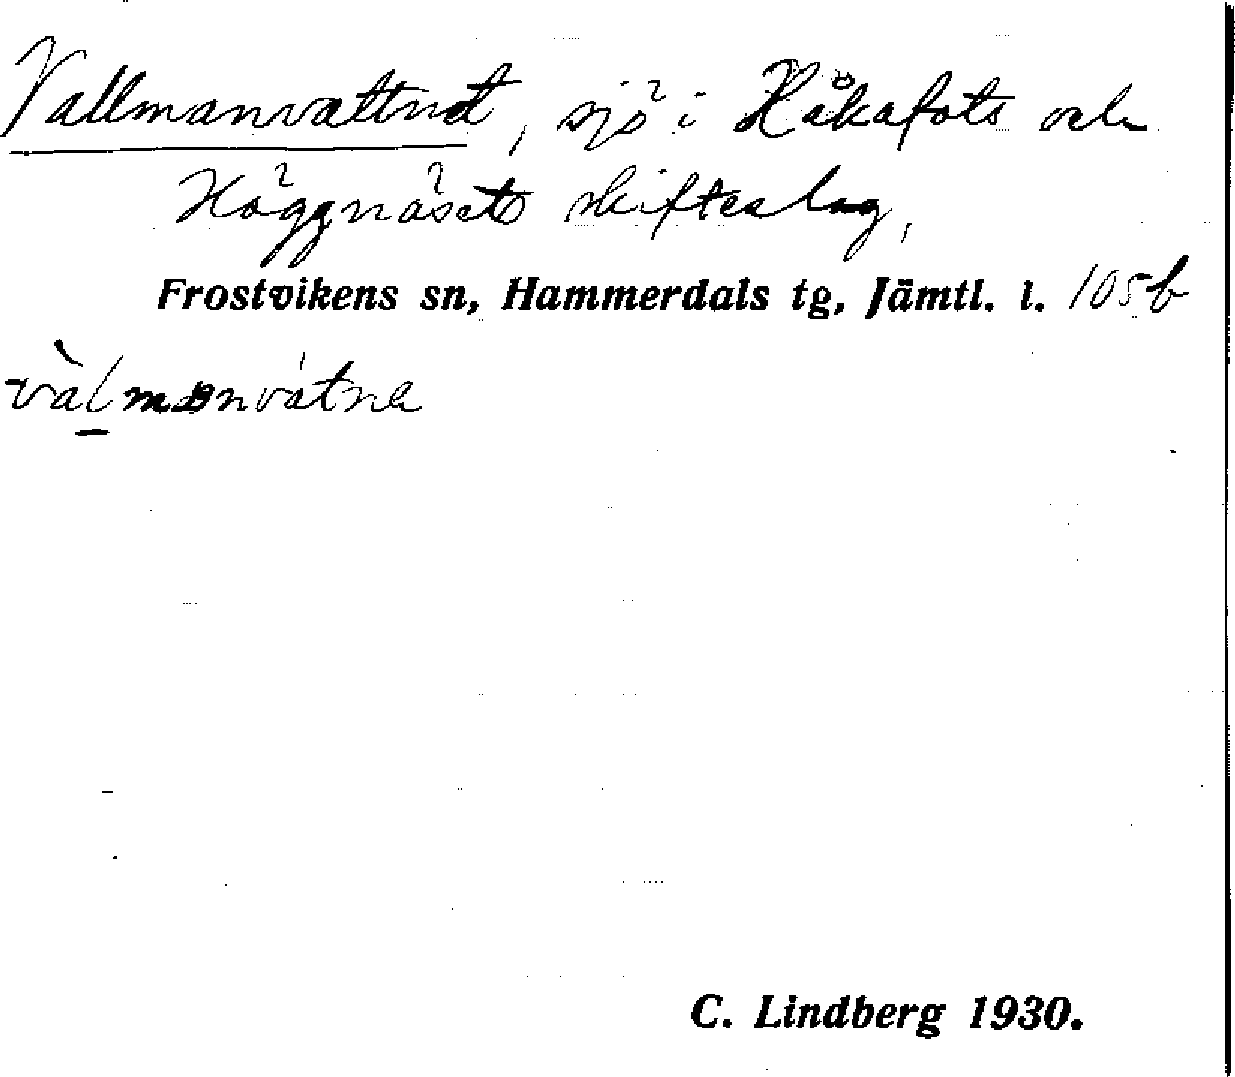 Vallmanvattnet, sjö i Håkafots och
Häggnäsets skifteslag,
Frostvikens sn, Hammerdals tg, Jämtl. l. 105b
vàlmanvátna
C. Lindberg 1930.